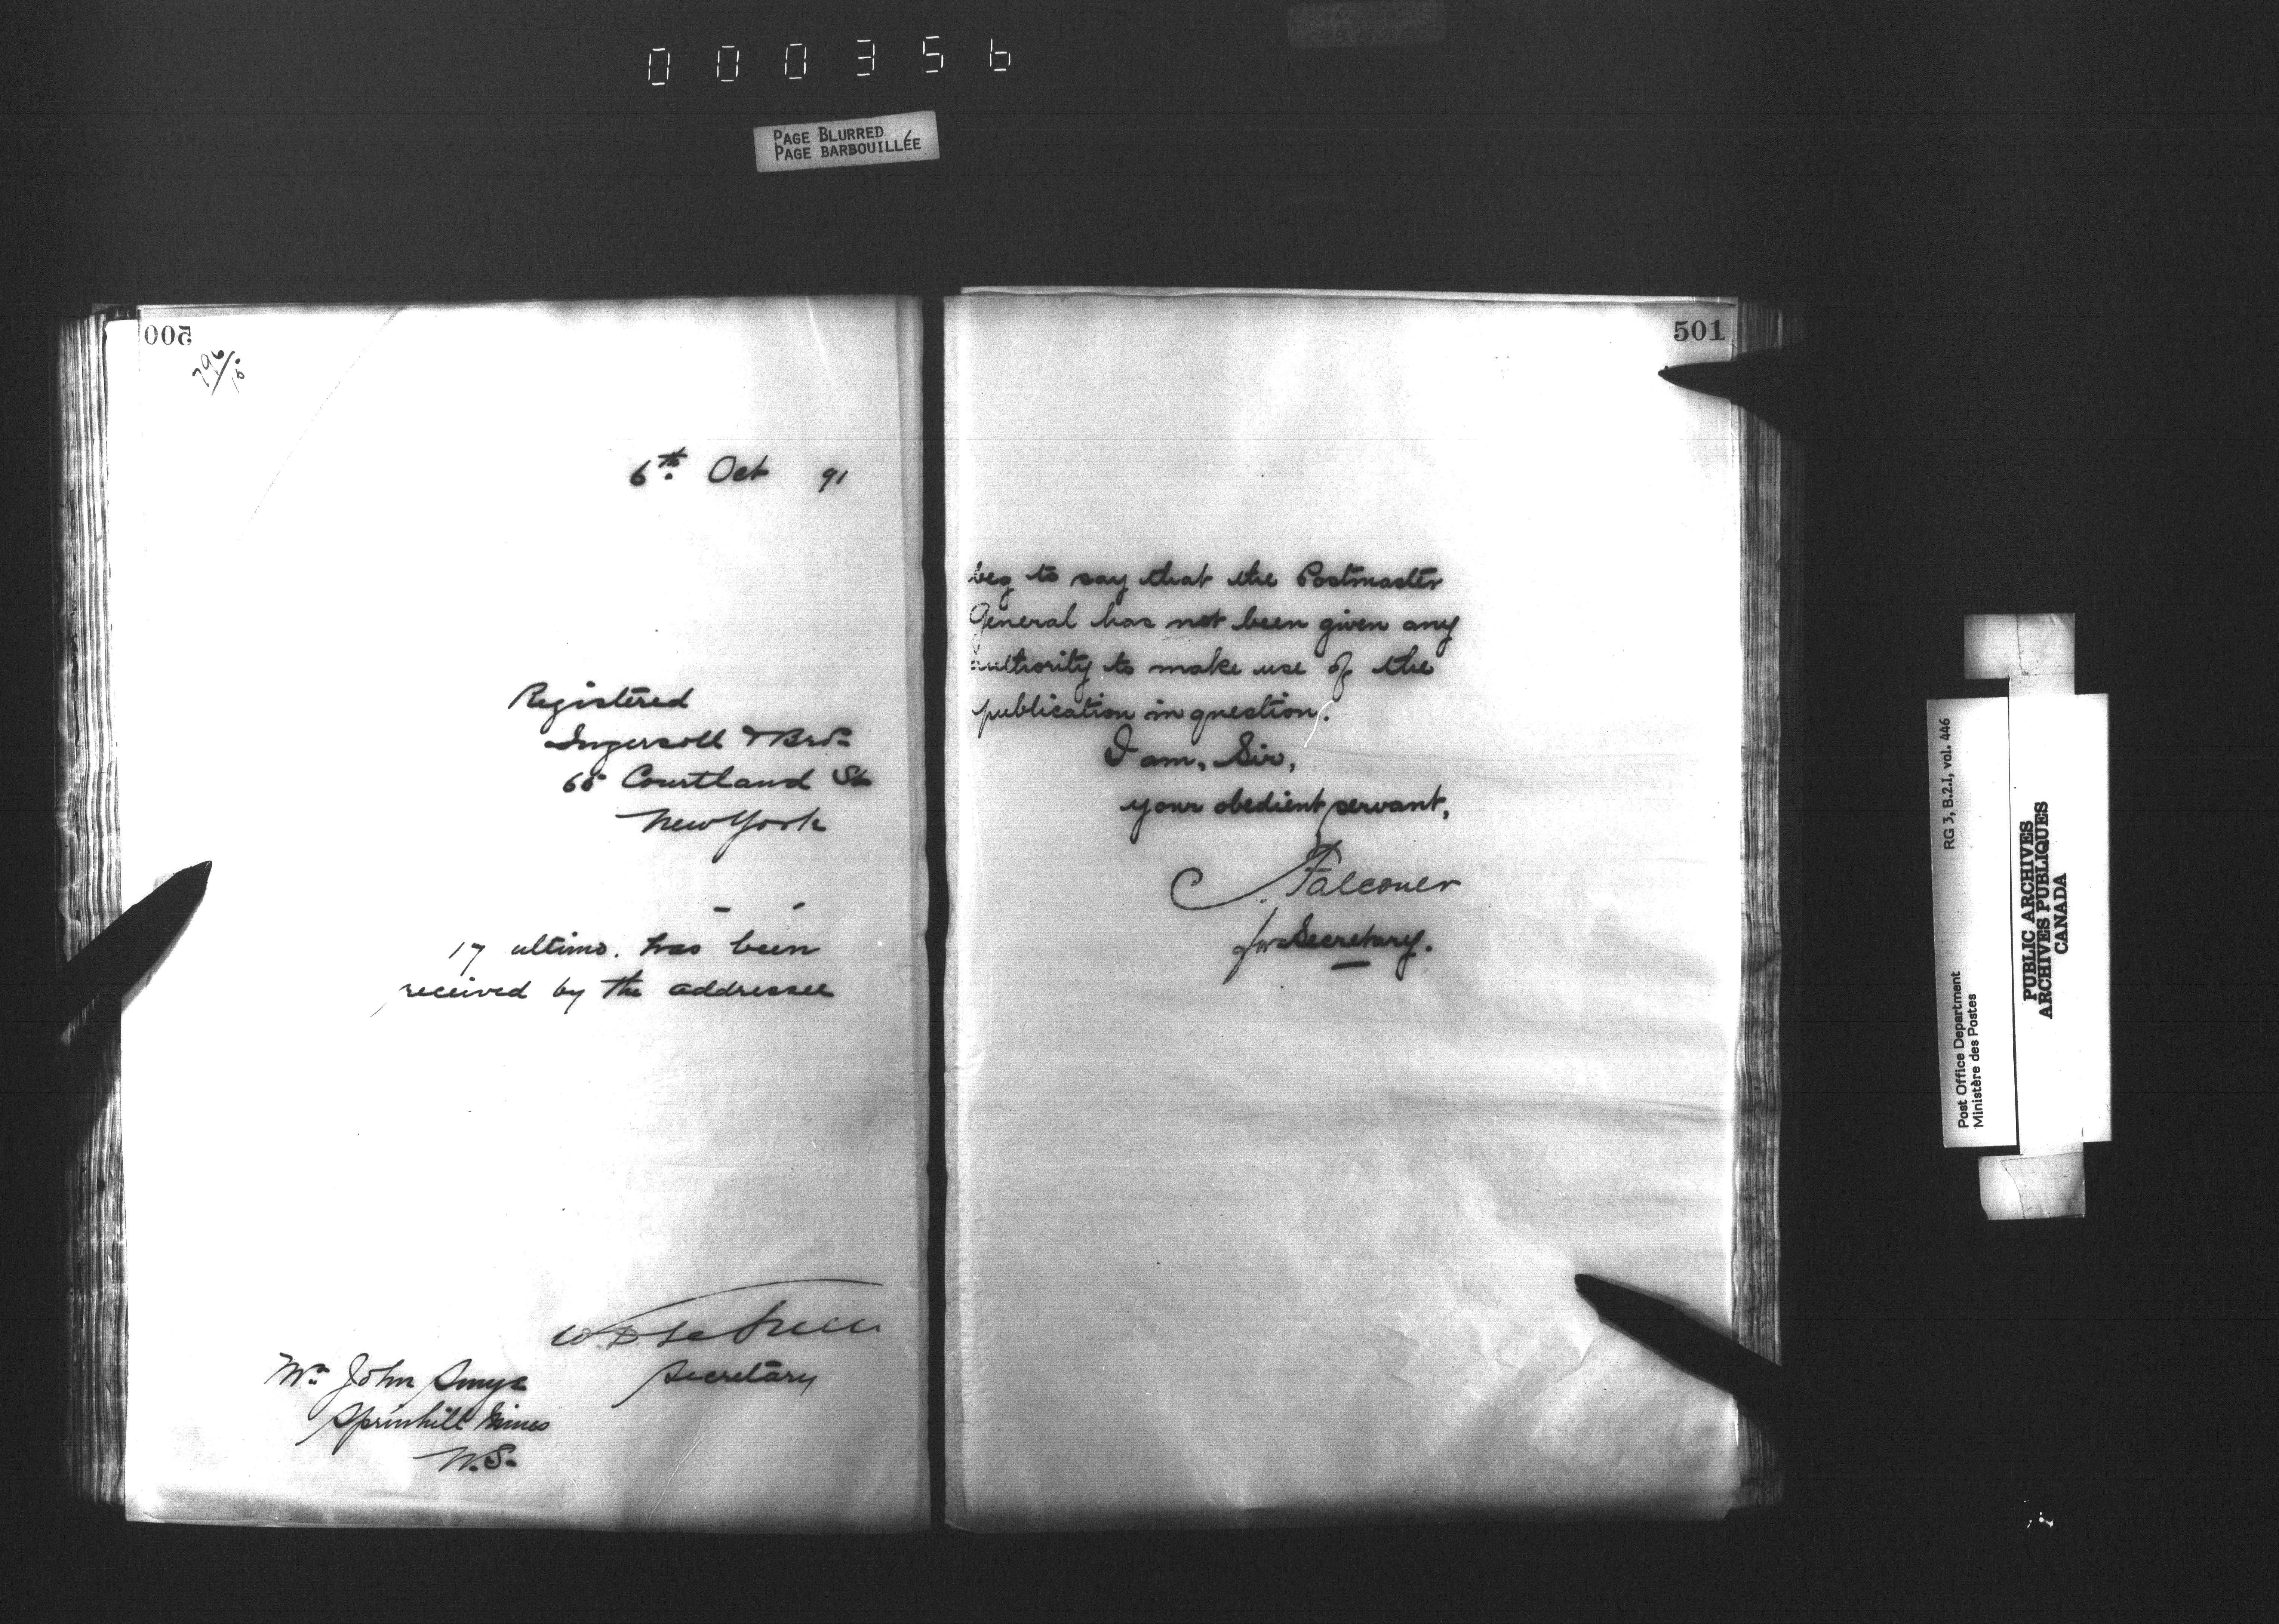 000356
PAGE BLURRED
PAGE BARBOUILLÉE
500
796/15
6th Oct 91
Registered
Ingersoll & Bro.
65 Courtland St
New York
17 ultimo. has been
received by the addressee
Secretary
Mr John
Sprinhill Mines
N.S.
501
beg to say that the Postmaster
General has not been given any
authority to make use of the
publication in question.
I am, Sir,
your obedient servant,
Falconer
for Secretary.
Post Office Department
Ministère des Postes
RG 3, B.2.1, vol. 446
PUBLIC ARCHIVES
ARCHIVES PUBLIQUES
CANADA